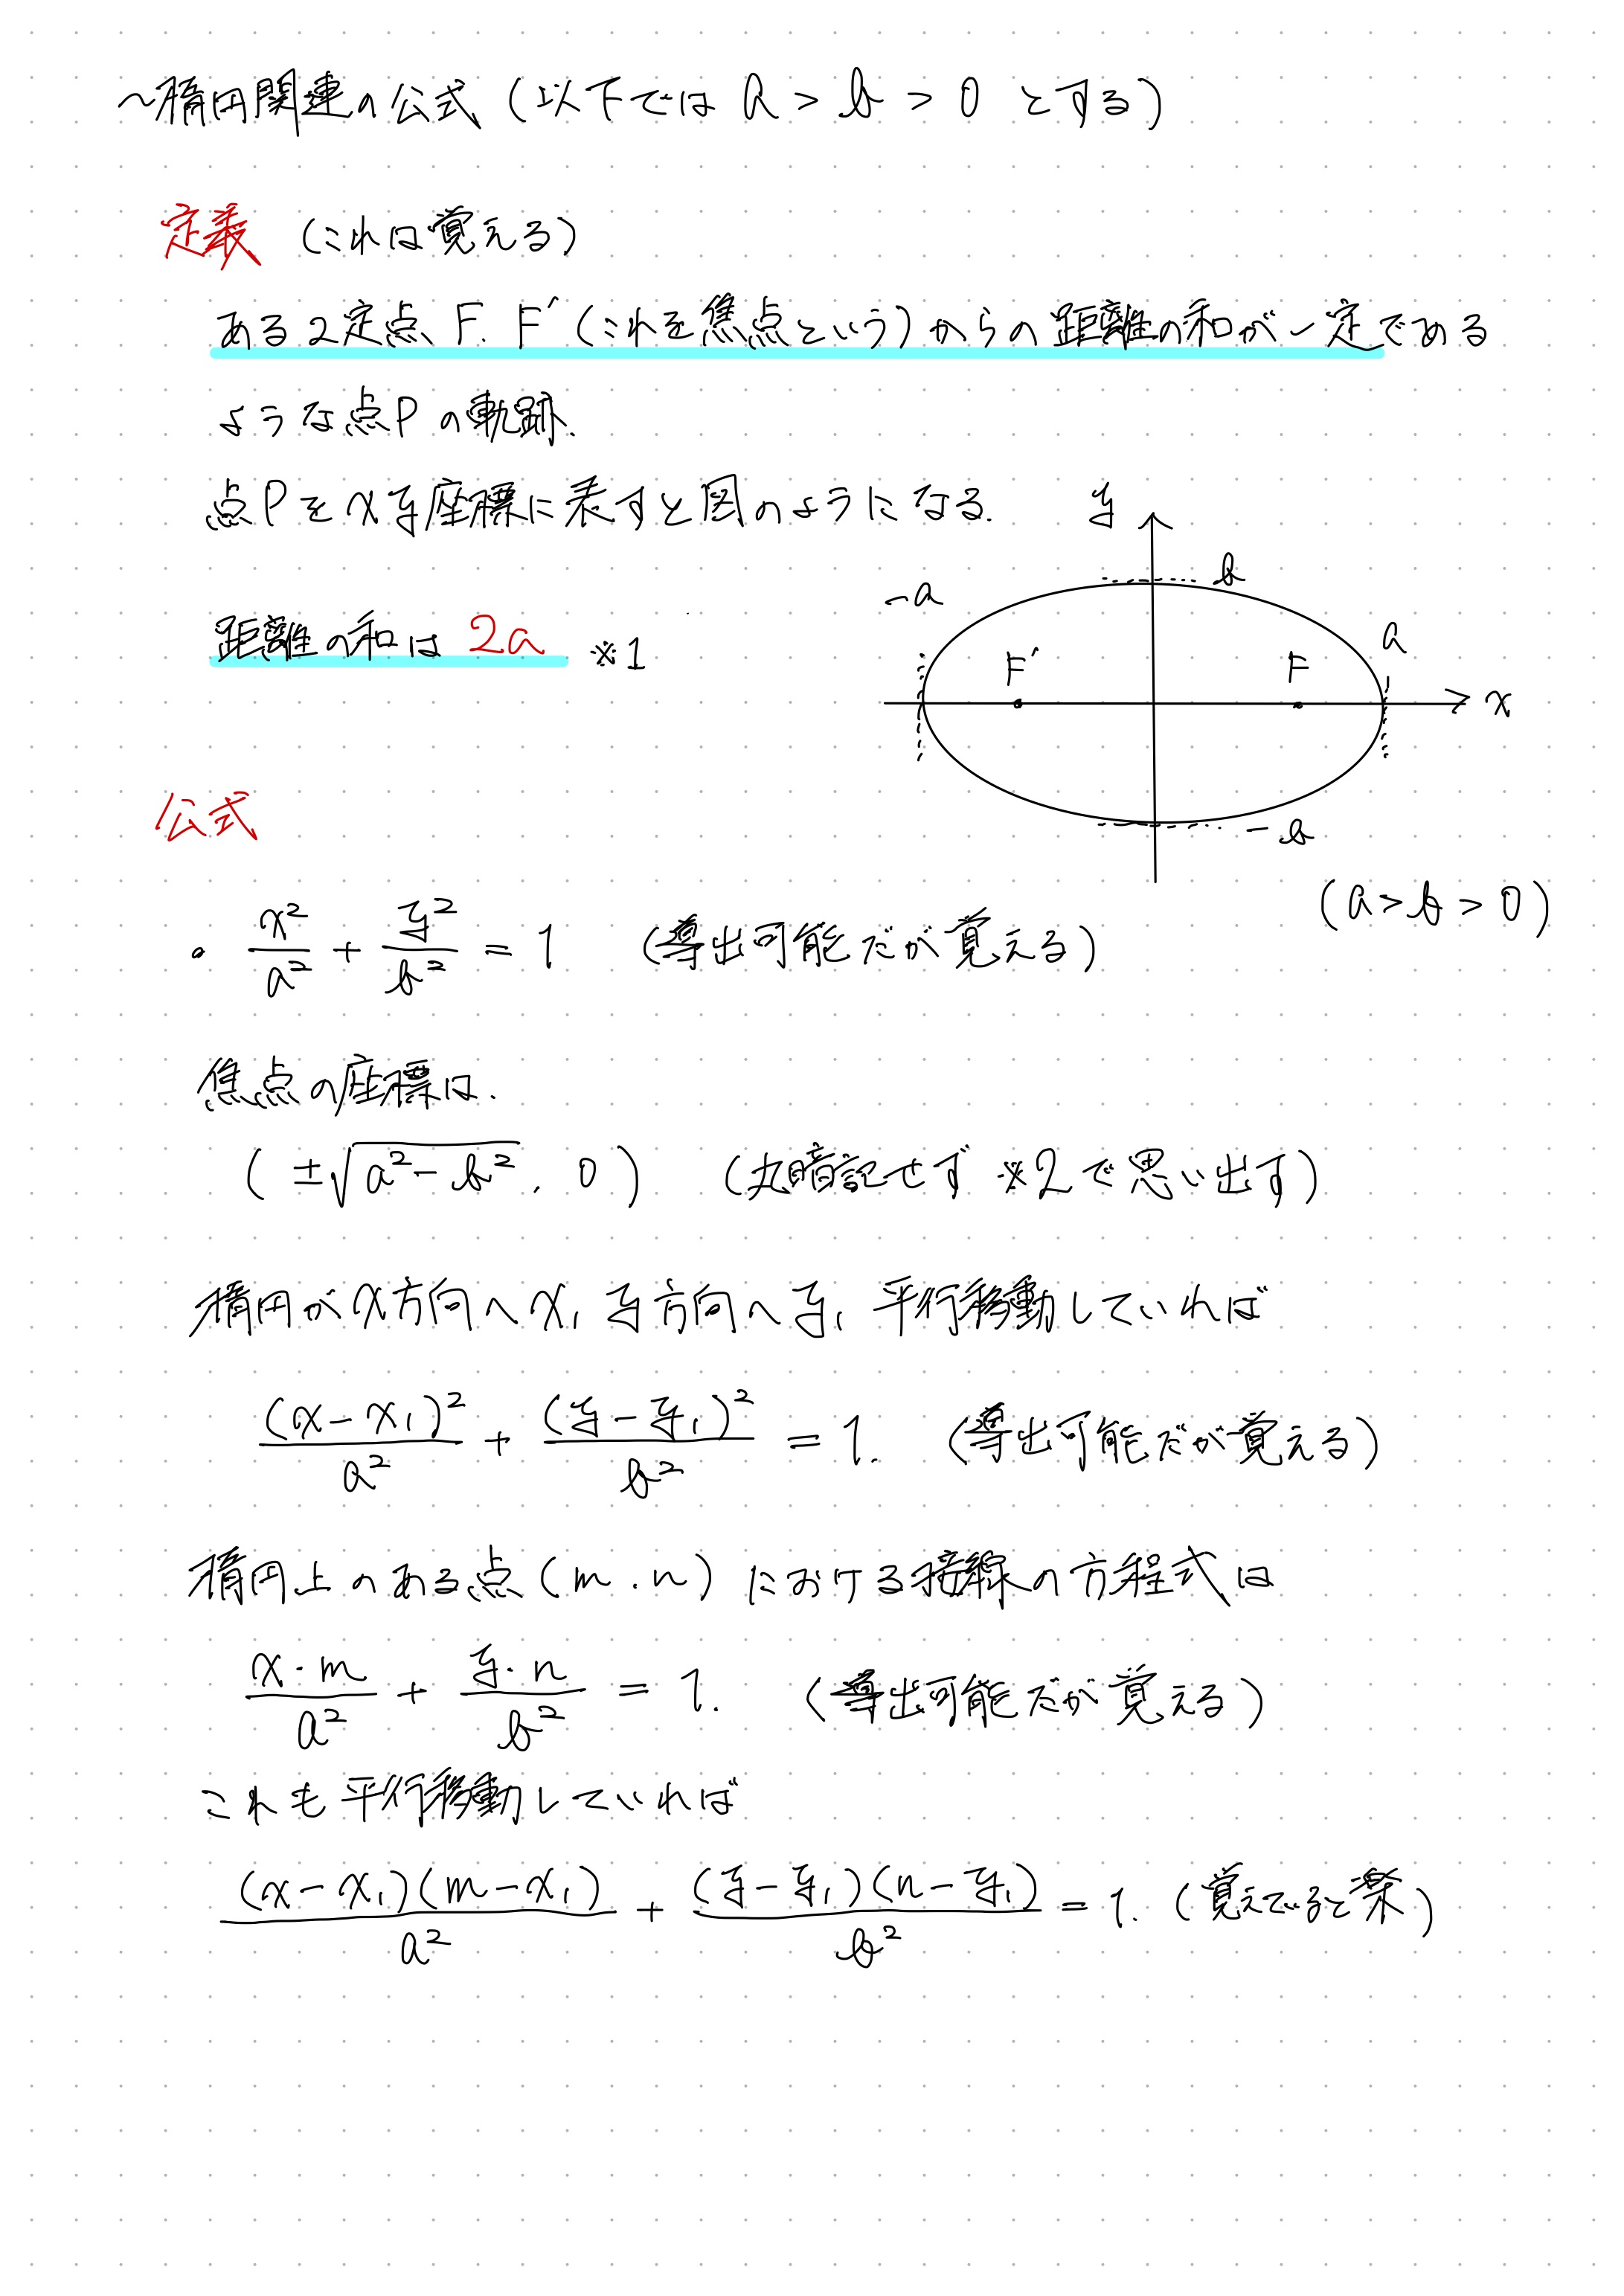 ～楕円関連の公式（以下では a > b > 0 とする）
定義 （これは覚える）
ある2定点、F. F′（これを焦点という）からの距離の和が一定である
ような点Pの軌跡.
点Pをxy座標に表すと図のようになる.
距離の和は 2a ※1
y
b
-a
a
F′
F
x
-b
(a > b > 0)
公式
。 x²/a² + y²/b² = 1 （導出可能だが覚える）
焦点の座標は.
( ±√(a²-b²) . 0 ) （丸暗記せず ※2で思い出す）
楕円がx方向へx₁ y方向へy₁ 平行移動していれば
(x-x₁)²/a² + (y-y₁)²/b² = 1. （導出可能だが覚える）
楕円上のある点(m . n)における接線の方程式は
x·m/a² + y·n/b² = 1. （導出可能だが覚える）
これも平行移動していれば
(x-x₁)(m-x₁)/a² + (y-y₁)(n-y₁)/b² = 1. （覚えていると楽）